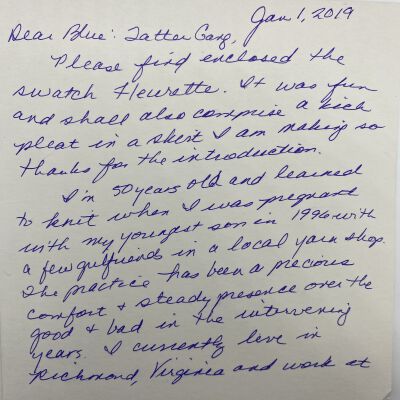 Jan 1, 2019
Dear Blue: Tatter Gang,
Please find enclosed the
swatch Flewrette. It was fun
and shall also comprise a kick
pleat in a skirt I am making so
thanks for the introduction.
I'm 50 years old and learned
to knit when I was pregnant
with my youngest son in 1996 with
a few girlfriends in a local yarn shop.
The practice has been a precious
comfort + steady presence over the
good + bad in the intervening
years. I currently live in
Richmond, Virginia and work at